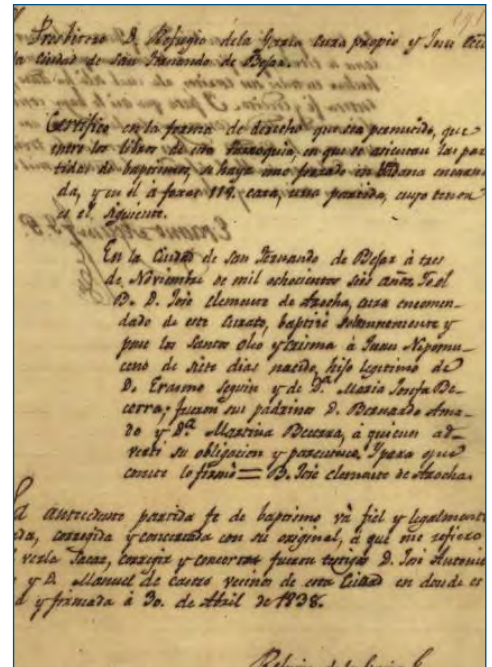 Presbitero D. Refugio dela Garza cura propio y Juez
la Ciudad de San Fernando de Bejar.
Certifico en la forma de derecho que sea permitido, que
entre los libros de esta Parroquia, en que se asientan las par
tidas de bautismos, se haya uno forrado en encarna
da, y en él á foxas 119. cara, una partida, cuyo tenor
es el siguiente.
En la Ciudad de San Fernando de Bejar à tres
de Noviembre de mil ochocientos seis años. Yo el
B. D. José Clemente de Arocha, cura encomen-
dado de este Curato, bautizé solemnemente y
puse los Santos oleo y crisma à Juan Nepomu-
ceno de siete dias nacido, hijo legitimo de
D. Erasmo Seguin y de Dª Maria Josefa Be-
cerra; fueron sus padrinos D. Bernardo Ama-
do y Dª Martina Becerra, à quienes ad-
verti su obligacion y parentesco. Y para que
conste lo firmé = B. José Clemente de Arocha.
antecedente partida fe de baptismo và fiel y legalmente
corregida y concertada con su original, à que me refiero
verla sacar, corregir y concertar fueron testigos D. José Antonio
y D. Manuel de Castro vecinos de esta Ciudad en donde es
y firmada à 30. de Abril de 1838.